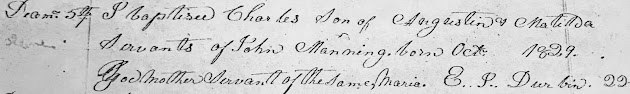 Decm. 5th I baptised Charles Son of Augustin & Matilda
Servants of John Manning, born Oct. 1829.
Godmother Servant of the same, Maria. E. P. Durbin. 22